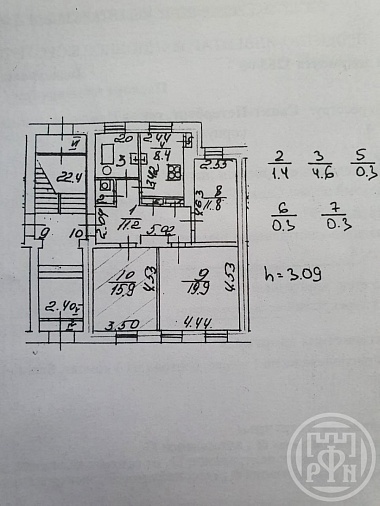 2 3 5
1.4 4.6 0.3
6 7
0.3 0.3
h = 3.09
2.20 2.44
4
8.4
3
3.42
2.55
22.4
8
11.8
1
11.2
5.92
9 10
10
15.9
4.53
9
19.9
4.53
2.40
3.50
4.44
РФН